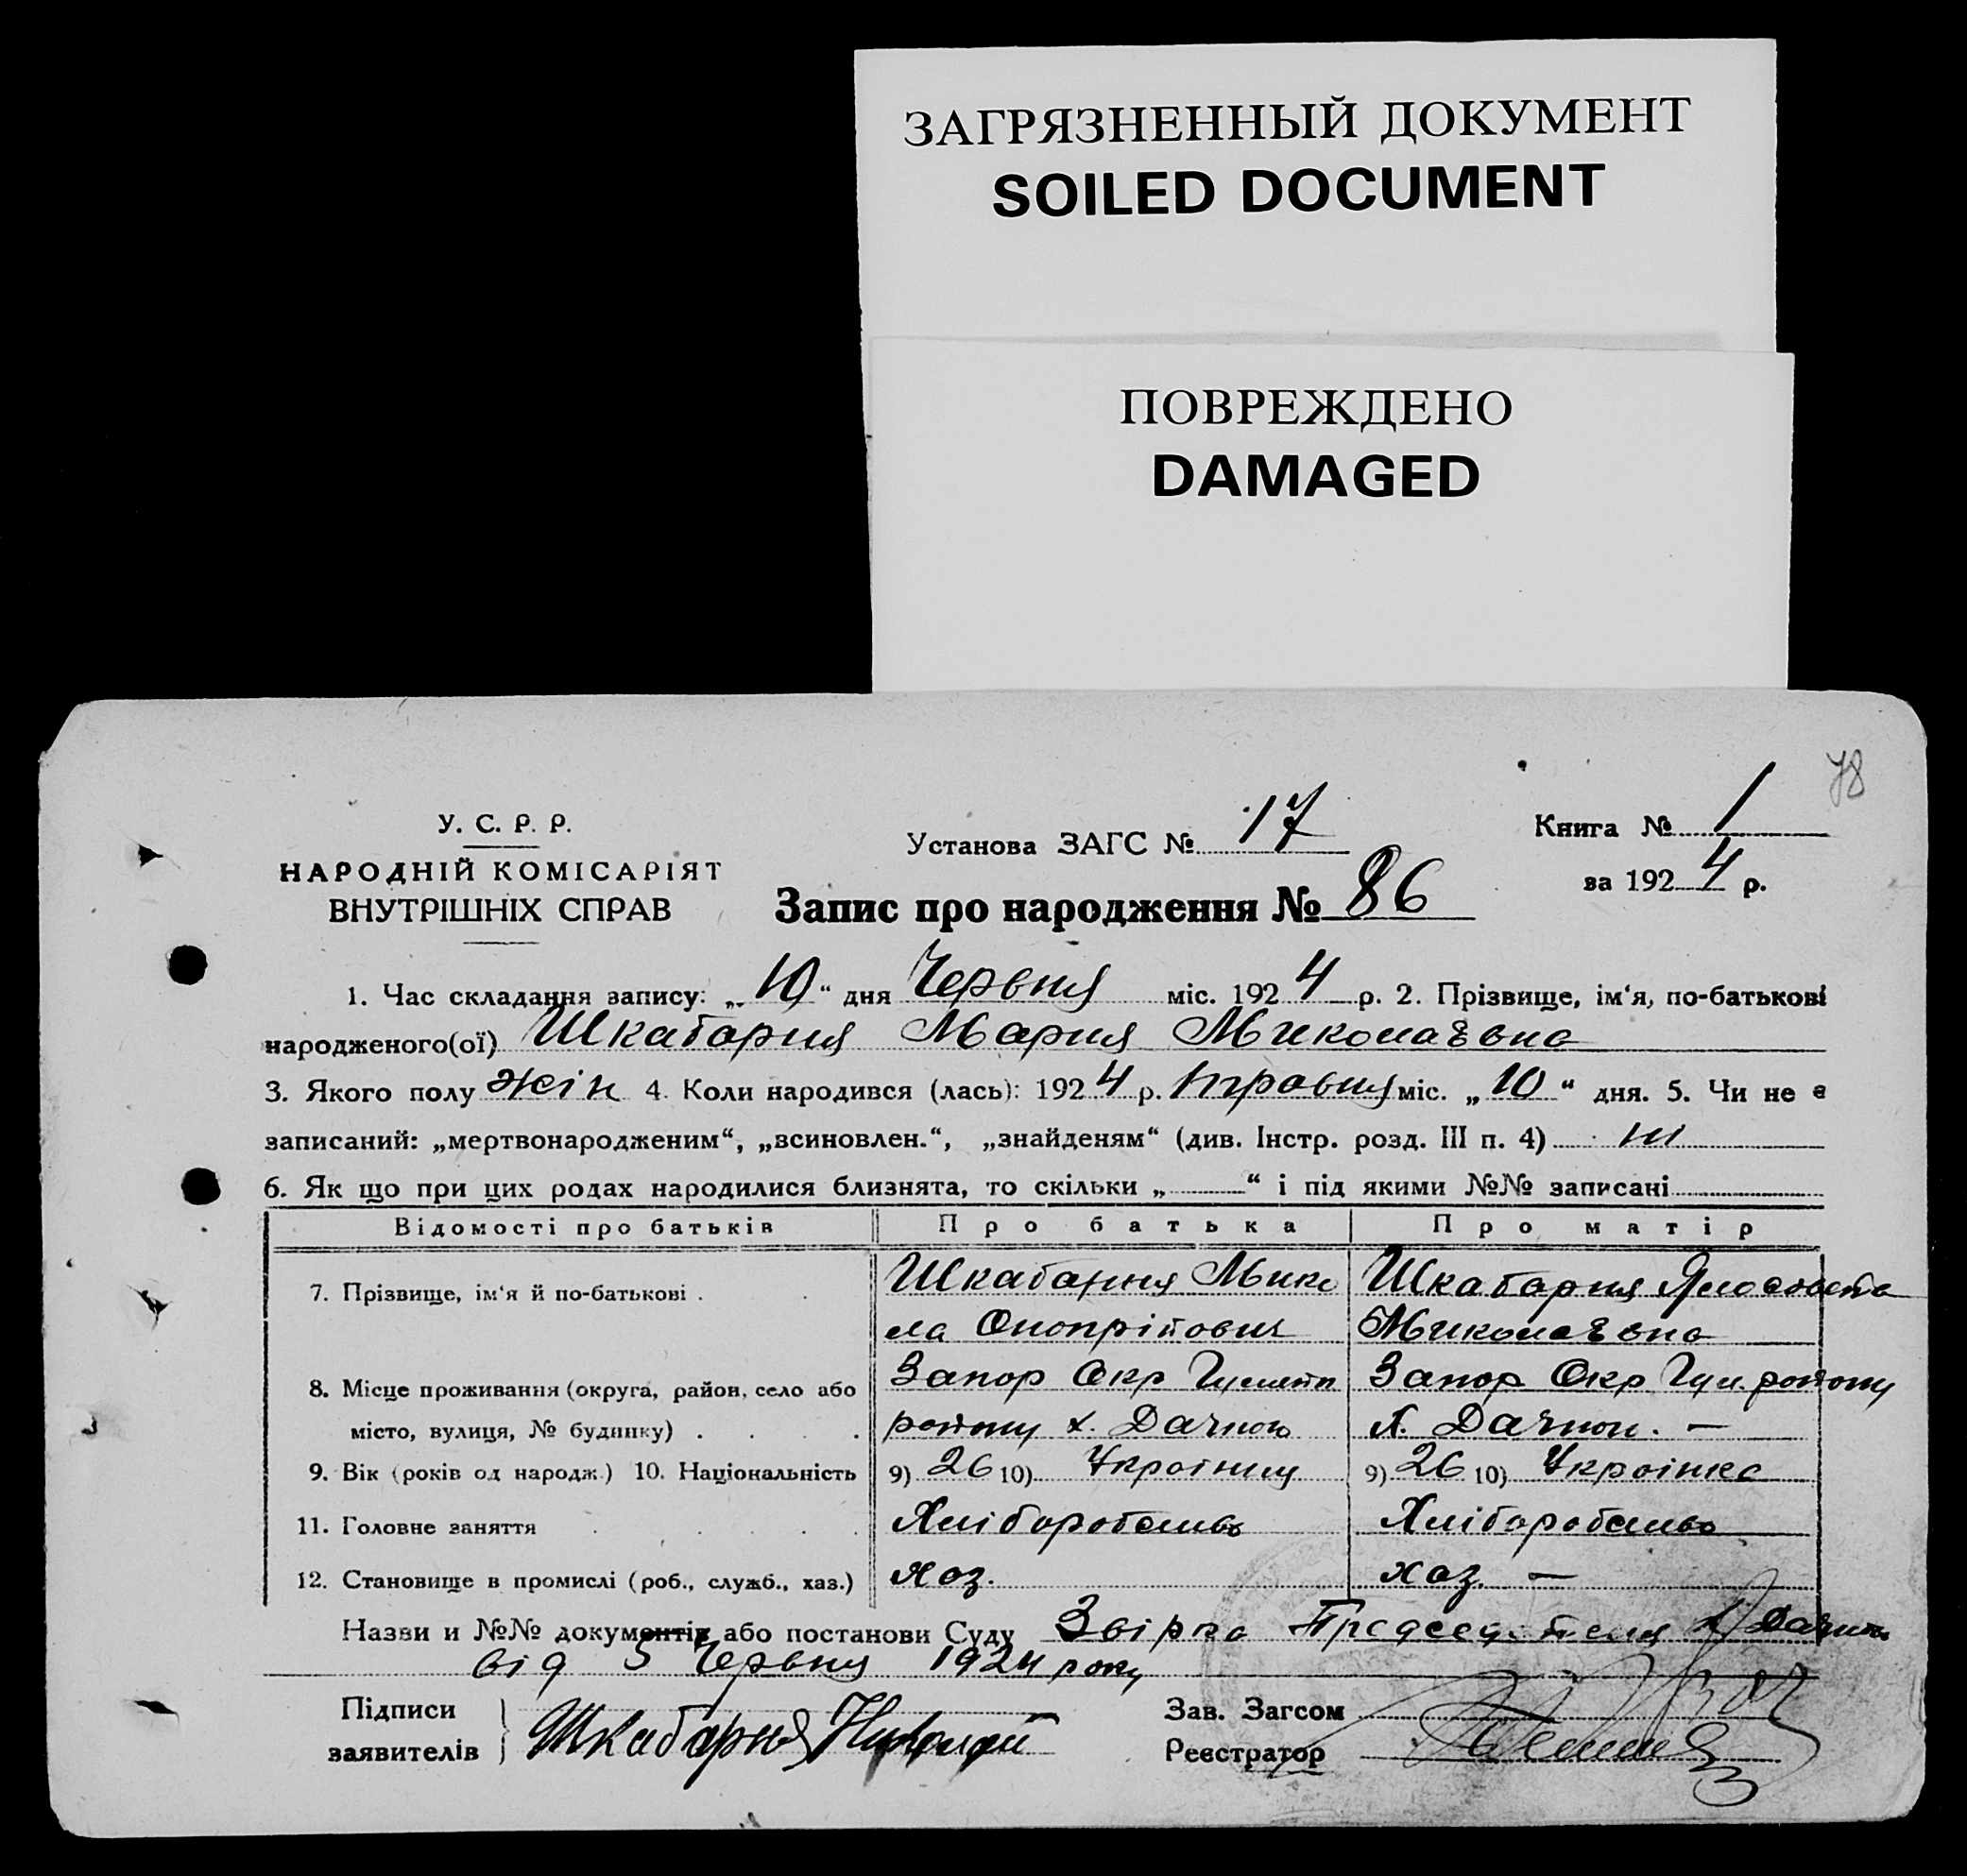 ЗАГРЯЗНЕННЫЙ ДОКУМЕНТ
SOILED DOCUMENT
ПОВРЕЖДЕНО
DAMAGED
78
У. С. Р. Р.
НАРОДНІЙ КОМІСАРІЯТ
ВНУТРІШНІХ СПРАВ
Установа ЗАГС № 17
Книга № 1
за 1924 р.
Запис про народження № 86
1. Час складання запису: „10“ дня Червня міс. 1924 р. 2. Прізвище, ім‘я, по-батькові
народженого(ої) Шкабарня Мария Миколаєвна
3. Якого полу жін 4. Коли народився (лась): 1924 р. травня міс. „10“ дня. 5. Чи не є
записаний: „мертвонародженим“, „всиновлен.“, „знайденям“ (див. Інстр. розд. III п. 4) ні
6. Як що при цих родах народилися близнята, то скільки „ “ і під якими №№ записані
Відомості про батьків Про батька Про матір
7. Прізвище, ім‘я й по-батькові . Шкабарня Мико Шкабарня
ла Онопрійович Миколаєвна
8. Місце проживання (округа, район, село або Запор Окр Запор Окр Гул. району
місто, вулиця, № будинку) . району х. Дачного х. Дачного. —
9. Вік (років од народж.) 10. Національність 9) 26 10) Українец 9) 26 10) Українка
11. Головне заняття Хліборобство Хліборобство
12. Становище в промислі (роб., служб., хаз.) хоз. хоз. —
Назви и №№ документів або постанови Суду Звірка Председателя х
від 5 Червня 1924 року
Підписи
заявителів Шкабарня Николай
Зав. Загсом
Реєстратор